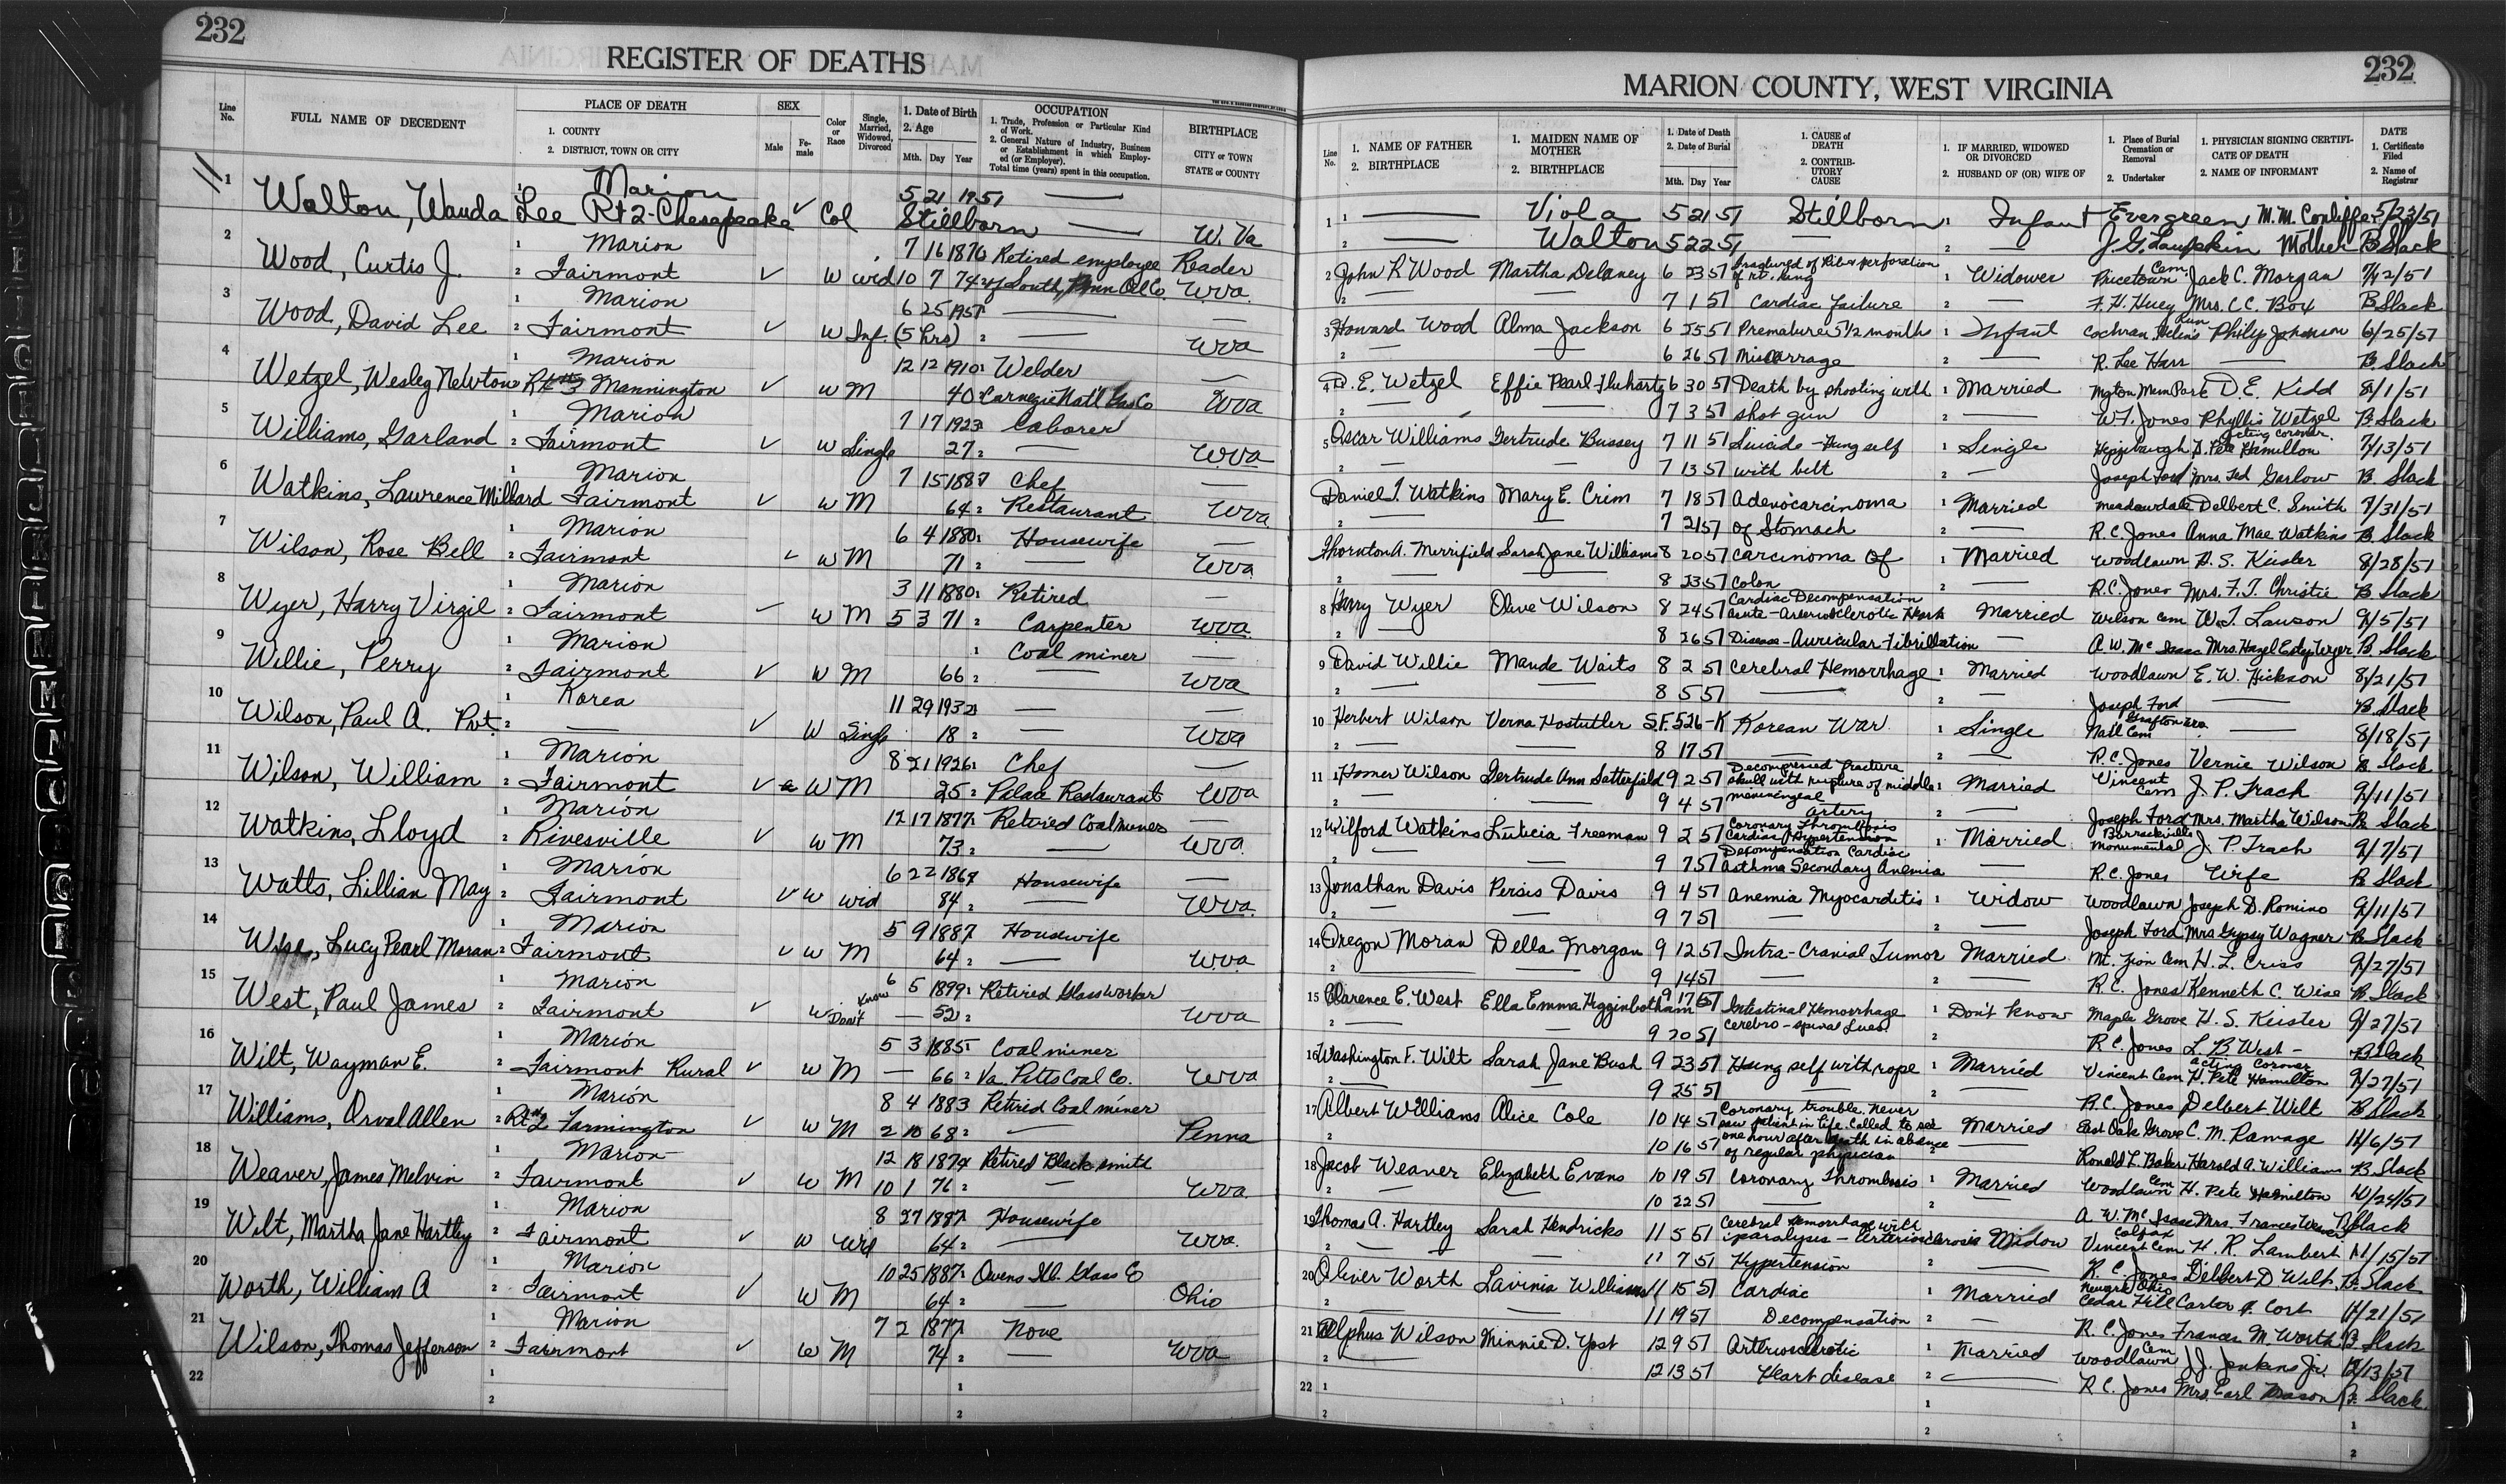 232
REGISTER OF DEATHS
Line No.
FULL NAME OF DECEDENT
PLACE OF DEATH
1. COUNTY
2. DISTRICT, TOWN OR CITY
SEX
Male
Female
Color or Race
Single, Married, Widowed, Divorced
1. Date of Birth
2. Age
Mth. Day Year
OCCUPATION
1. Trade, Profession or Particular Kind of Work.
2. General Nature of Industry, Business or Establishment in which Employed (or Employer).
Total time (years) spent in this occupation.
BIRTHPLACE
CITY or TOWN
STATE or COUNTY
1 Marion 5 21 1951 —
Walton, Wanda Lee Rt 2-Chesapeake ✓ Col Stillborn — W. Va
2 Marion 7 16 1876 Retired employee Reader
Wood, Curtis J. Fairmont ✓ W wid 10 7 74 of South Penn Oil Co. WVa.
3 Marion 6 25 1951 —
Wood, David Lee Fairmont ✓ W Inf. (5 hrs) — WVa
4 Marion 12 12 1910 Welder —
Wetzel, Wesley Newton Rt #3 Mannington ✓ W M 40 Carnegie Natl Gas Co WVa
5 Marion 7 17 1923 Laborer
Williams, Garland Fairmont ✓ W Single 27 — WVa
6 Marion 7 15 1887 Chef —
Watkins, Lawrence Millard Fairmont ✓ W M 64 Restaurant WVa
7 Marion 6 4 1880 Housewife —
Wilson, Rose Bell Fairmont ✓ W M 71 — WVa
8 Marion 3 11 1880 Retired —
Wyer, Harry Virgil Fairmont ✓ W M 5 3 71 Carpenter WVa
9 Marion Coal miner —
Willie, Perry Fairmont ✓ W M 66 — WVa
10 Korea 11 29 1932 — —
Wilson, Paul A. Pvt. — ✓ W Single 18 — WVa
11 Marion 8 21 1926 Chef —
Wilson, William Fairmont ✓ W M 25 Palace Restaurant WVa
12 Marion 12 17 1877 Retired Coal miner —
Watkins, Lloyd Rivesville ✓ W M 73 — WVa.
13 Marion 6 22 1867 Housewife —
Watts, Lillian May Fairmont ✓ W wid 84 — WVa.
14 Marion 5 9 1887 Housewife
Wise, Lucy Pearl Moran Fairmont ✓ W M 64 — WVa
15 Marion 6 5 1899 Retired Glassworker
West, Paul James Fairmont ✓ W Don't Know — 52 WVa
16 Marion 5 3 1885 Coal miner
Wilt, Wayman E. Fairmont Rural ✓ W M — 66 Va. Pitts Coal Co. WVa
17 Marion 8 4 1883 Retired Coal miner
Williams, Orval Allen Rt #2 Farmington ✓ W M 2 10 68 — Penna
18 Marion 12 18 1874 Retired Blacksmith
Weaver, James Melvin Fairmont ✓ W M 10 1 76 — WVa.
19 Marion 8 27 1887 Housewife
Wilt, Martha Jane Hartley Fairmont ✓ W Wid 64 — WVa.
20 Marion 10 25 1887 Owens Ill. Glass Co
Worth, William A Fairmont ✓ W M 64 — Ohio
21 Marion 7 2 1877 None
Wilson, Thomas Jefferson Fairmont ✓ W M 74 — WVa
22
232
MARION COUNTY, WEST VIRGINIA
Line No.
1. NAME OF FATHER
2. BIRTHPLACE
1. MAIDEN NAME OF MOTHER
2. BIRTHPLACE
1. Date of Death
2. Date of Burial
Mth. Day Year
1. CAUSE of DEATH
2. CONTRIBUTORY CAUSE
1. IF MARRIED, WIDOWED OR DIVORCED
2. HUSBAND OF (OR) WIFE OF
1. Place of Burial Cremation or Removal
2. Undertaker
1. PHYSICIAN SIGNING CERTIFICATE OF DEATH
2. NAME OF INFORMANT
DATE
1. Certificate Filed
2. Name of Registrar
1 — Viola 5 21 51 Stillborn Infant Evergreen M. M. Conliffe 5/23/51
— Walton 5 22 51 — — Mother B Slack
2 John R Wood Martha Delaney 6 23 51 Fractured of Rib & perforation of rt. lung Widower Pricetown Cem. Jack C. Morgan 7/2/51
— — 7 1 51 Cardiac failure — F. H. Huey Mrs. C C. Box B Slack
3 Howard Wood Alma Jackson 6 25 51 Premature 5 1/2 month Infant Cochran, Helin's Run Philip Johnson 6/25/51
— — 6 26 51 Miscarrage — R. Lee Harr — B. Slack
4 D. E. Wetzel Effie Pearl Fluharty 6 30 51 Death by shooting with Married Mgton Mem Park D. E. Kidd 8/1/51
— — 7 3 51 shot gun — W. F. Jones Phyllis Wetzel B. Slack
5 Oscar Williams Gertrude Bussey 7 11 51 Suicide - Hung self Single Acting coroner H. Pete Hamilton 7/13/51
— — 7 13 51 with belt — Joseph Ford Mrs. Ted Garlow B. Slack
Daniel T. Watkins Mary E. Crim 7 18 51 Adenocarcinoma Married Meadowdale Delbert C. Smith 7/31/51
— — 7 21 51 of Stomach — R. C. Jones Anna Mae Watkins B. Slack
Thornton A. Merrifield Sarah Jane Williams 8 20 51 Carcinoma of Married Woodlawn H. S. Keister 8/28/51
— — 8 23 51 Colon — R. C. Jones Mrs. F. T. Christie B. Slack
8 Harry Wyer Olive Wilson 8 24 51 Cardiac Decompensation acute - Arteriosclerotic Heart Married Wilson Cem W. T. Lawson 9/5/51
— 8 26 51 Disease - Auricular Fibrillation — A. W. McIsaac Mrs. Hazel Edy Wyer B. Slack
9 David Willie Maude Waits 8 2 51 Cerebral Hemorrhage Married Woodlawn E. W. Hickson 8/21/51
— — 8 5 51 — — Joseph Ford — B. Slack
10 Herbert Wilson Verna Hostutler S.F. 526-K Korean War Single Grafton WVa. Natl Cem — 8/18/51
— — 8 17 51 — — R. C. Jones Vernie Wilson B Slack
11 Homer Wilson Gertrude Ann Satterfield 9 2 51 Decompressed fracture skull with rupture of middle Married Vincent Cem J. P. Trach 9/11/51
— — 9 4 51 meninengeal artery — Joseph Ford Mrs. Martha Wilson B. Slack
12 Wilford Watkins Luticia Freeman 9 2 51 Coronary Thrombosis Cardiac Hypertension Married Barrackville Monumental J. P. Trach 9/7/51
— — 9 7 51 Decompensation Cardiac Asthma Secondary Anemia — R. C. Jones Wife B. Slack
13 Jonathan Davis Persis Davis 9 4 51 Anemia Myocarditis Widow Woodlawn Joseph D. Romino 9/11/51
— — 9 7 51 — — Joseph Ford Mrs Gypsy Wagner B. Slack
14 Oregon Moran Della Morgan 9 12 51 Intra-Cranial Tumor Married Mt. Zion Cem H. L. Criss 9/27/51
— — 9 14 51 — — R. C. Jones Kenneth C. Wise B. Slack
15 Clarence E. West Ella Emma Higginbotham 9 17 51 Intestinal Hemorrhage Don't know Maple Grove H. S. Keister 9/27/51
— — 9 20 51 Cerebro-spinal Lues R. C. Jones L. B. West - B Slack
16 Washington F. Wilt Sarah Jane Bush 9 23 51 Hung self with rope Married Vincent Cem Acting Coroner H. Pete Hamilton 9/27/51
— — 9 25 51 — — R. C. Jones Delbert Wilt B Slack
17 Albert Williams Alice Cole 10 14 51 Coronary trouble. Never saw patient in life. Called to see Married East Oak Grove C. M. Ramage 11/6/51
10 16 51 one hour after death in absence of regular physician — Ronald L. Baker Harold A. Williams B. Slack
18 Jacob Weaver Elizabeth Evans 10 19 51 Coronary Thrombosis Married Woodlawn Cem H. Pete Hamilton 10/24/51
— — 10 22 51 — — A W. McIsaac Mrs. Frances Weaver B Slack
19 Thomas A. Hartley Sarah Hendricks 11 5 51 Cerebral Hemorrhage with paralysis - Arteriosclerosis Widow Colfax Vincent Cem H. R. Lambert 11/15/51
— — 11 7 51 Hypertension — R. C. Jones Delbert D Wilt B. Slack
20 Oliver Worth Lavinia Williams 11 15 51 Cardiac Married Newark Ohio Cedar Hill 11/21/51
— — 11 19 51 Decompensation — R. C. Jones Frances M. Worth B Slack
21 Alphus Wilson Minnie D. Yost 12 9 51 Arteriosclerotic Married Woodlawn Cem J. J. Jenkins Jr. 12/13/51
— 12 13 51 Heart disease — R C. Jones Mrs. Earl Mason B. Slack
22